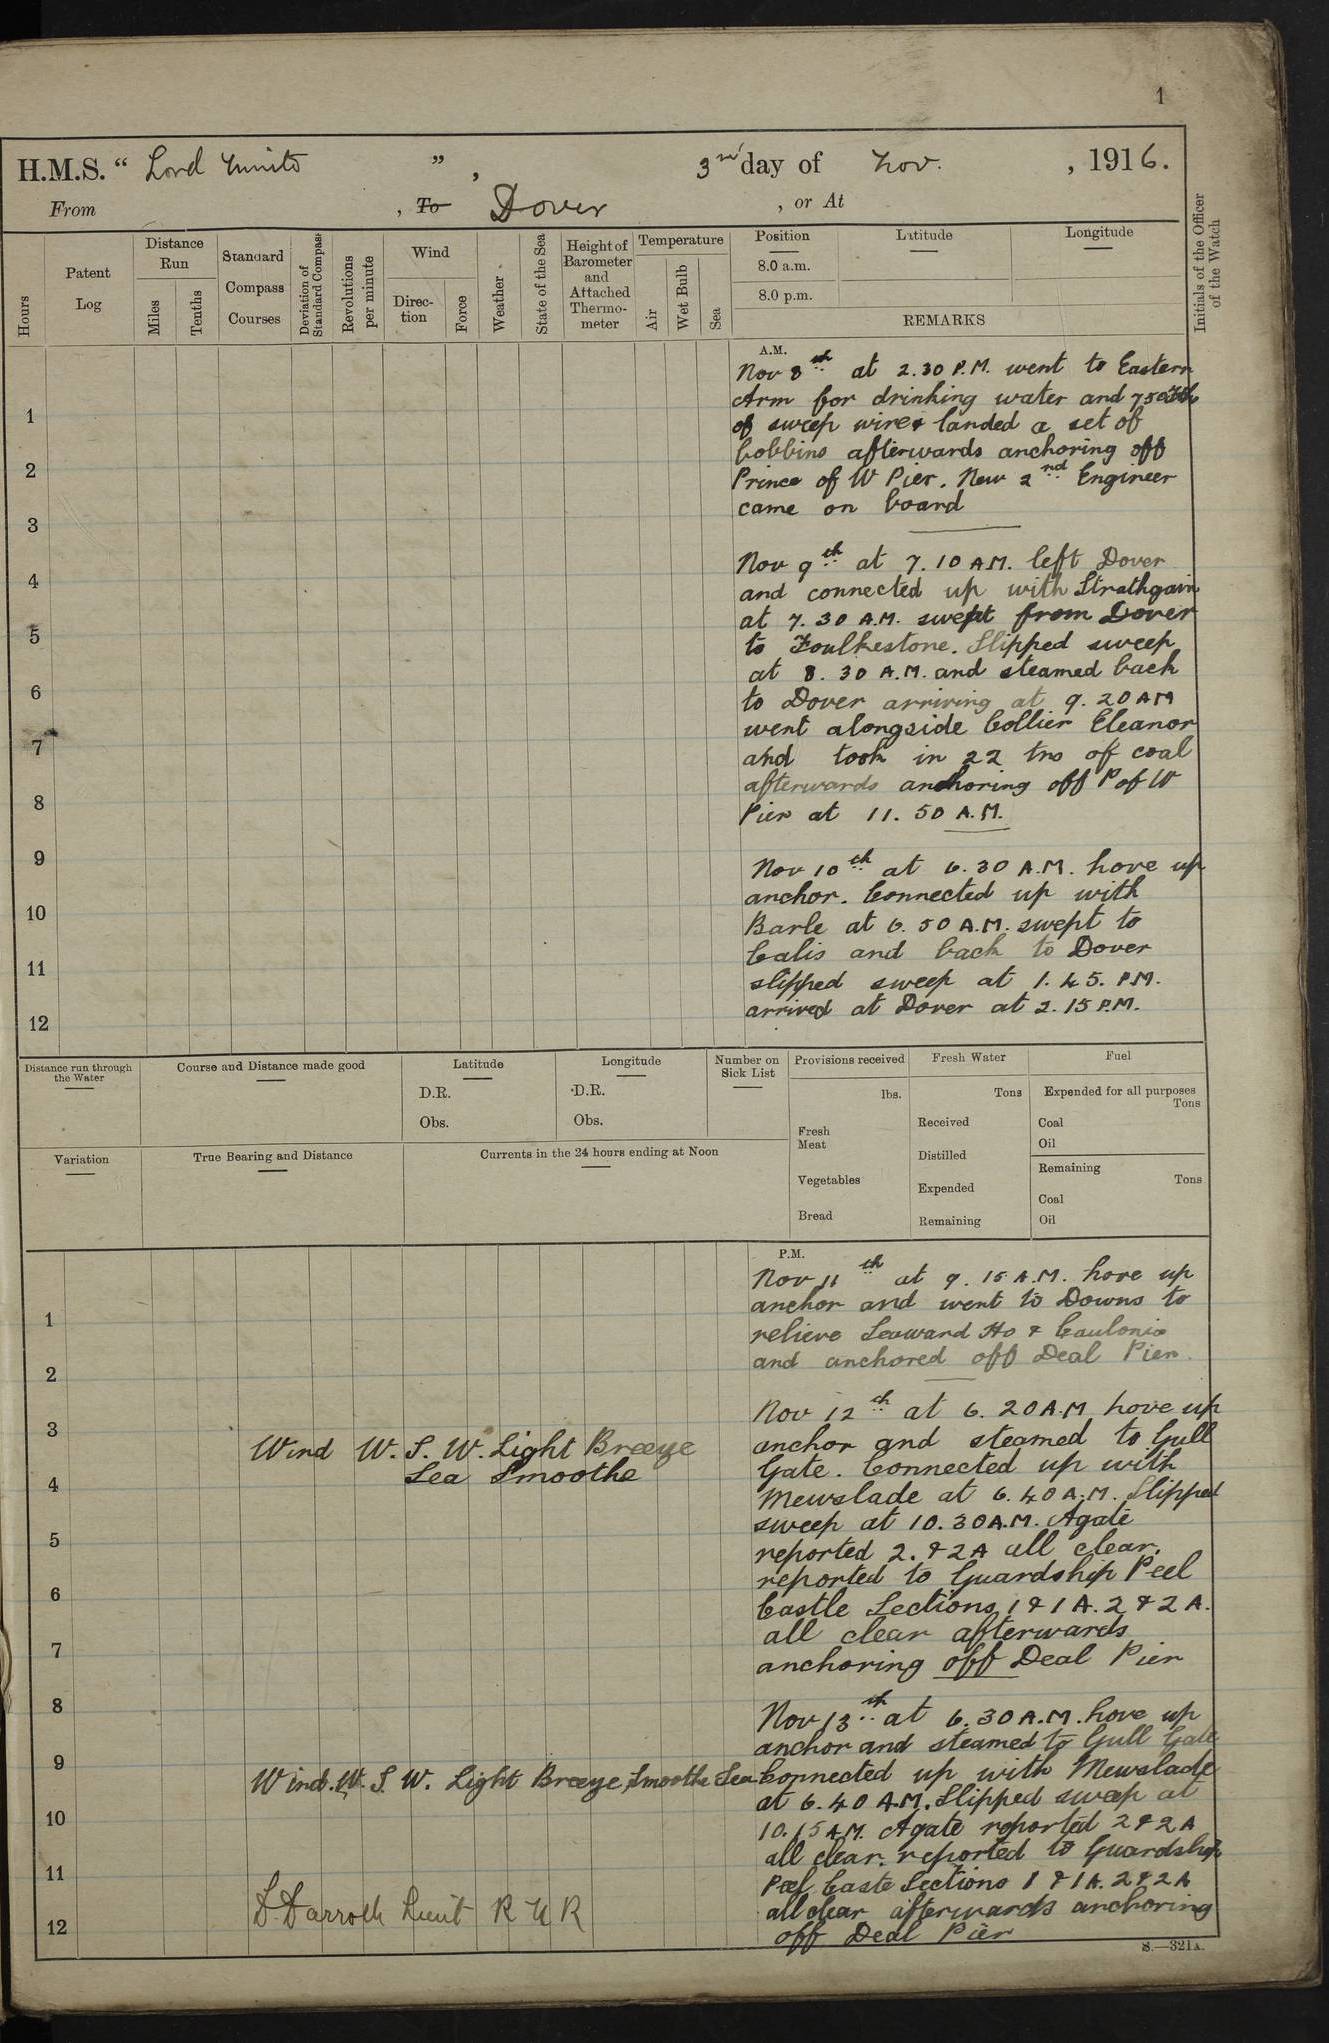 1
H.M.S. " Lord Minto ", 3rd day of Nov. , 1916.
From , To Dover , or At
Hours
Patent Log
Distance Run
Miles
Tenths
Standard Compass Courses
Deviation of Standard Compass
Revolutions per minute
Wind
Direc-tion
Force
Weather
State of the Sea
Height of Barometer and Attached Thermo-meter
Temperature
Air
Wet Bulb
Sea
Position
Latitude
Longitude
8.0 a.m.
8.0 p.m.
REMARKS
Initials of the Officer of the Watch
A.M.
Nov 8th at 2.30 P.M. went to Eastern
Arm for drinking water and 750
of sweep wire & landed a set of
bobbins afterwards anchoring off
Prince of W Pier. New 2nd Engineer
came on board
Nov 9th at 7.10 A.M. left Dover
and connected up with Strathgarin
at 7.30 A.M. swept from Dover
to Foulkestone. Slipped sweep
at 8.30 A.M. and steamed back
to Dover arriving at 9.20 AM
went alongside Collier Eleanor
and took in 22 tns of coal
afterwards anchoring off P of W
Pier at 11.50 A.M.
Nov 10th at 6.30 A.M. hove up
anchor. Connected up with
Barle at 6.50 A.M. swept to
Calis and back to Dover
slipped sweep at 1.45. P.M.
arrived at Dover at 2.15 P.M.
1
2
3
4
5
6
7
8
9
10
11
12
Distance run through the Water
Course and Distance made good
Latitude
D.R.
Obs.
Longitude
D.R.
Obs.
Number on Sick List
Provisions received
lbs.
Fresh Meat
Vegetables
Bread
Fresh Water
Tons
Received
Distilled
Expended
Remaining
Fuel
Expended for all purposes
Tons
Coal
Oil
Remaining
Tons
Coal
Oil
Variation
True Bearing and Distance
Currents in the 24 hours ending at Noon
P.M.
Nov 11th at 9.15 A.M. hove up
anchor and went to Downs to
relieve Seaward Ho & Caulonia
and anchored off Deal Pier.
Nov 12th at 6.20 A.M hove up
anchor and steamed to Gull
Gate. Connected up with
Mewslade at 6.40 A.M. Slipped
sweep at 10.30 A.M. Agate
reported 2. & 2A all clear.
reported to Guardship Peel
Castle Sections 1 & 1 A. 2 & 2 A.
all clear afterwards
anchoring off Deal Pier
Wind W. S. W. Light Breeze
Sea Smoothe
Nov 13th at 6.30 A.M. hove up
anchor and steamed to Gull Gate
Connected up with Mewslade
at 6.40 A.M. Slipped sweep at
10.15 A.M. Agate reported 2 & 2 A
all clear. reported to Guardship
Peel Caste Sections 1 & 1 A. 2 & 2 A
all clear afterwards anchoring
off Deal Pier
Wind. W. S. W. Light Breeze, Smoothe Sea
D. Darroch Lieut R N R
1
2
3
4
5
6
7
8
9
10
11
12
S.—321A.